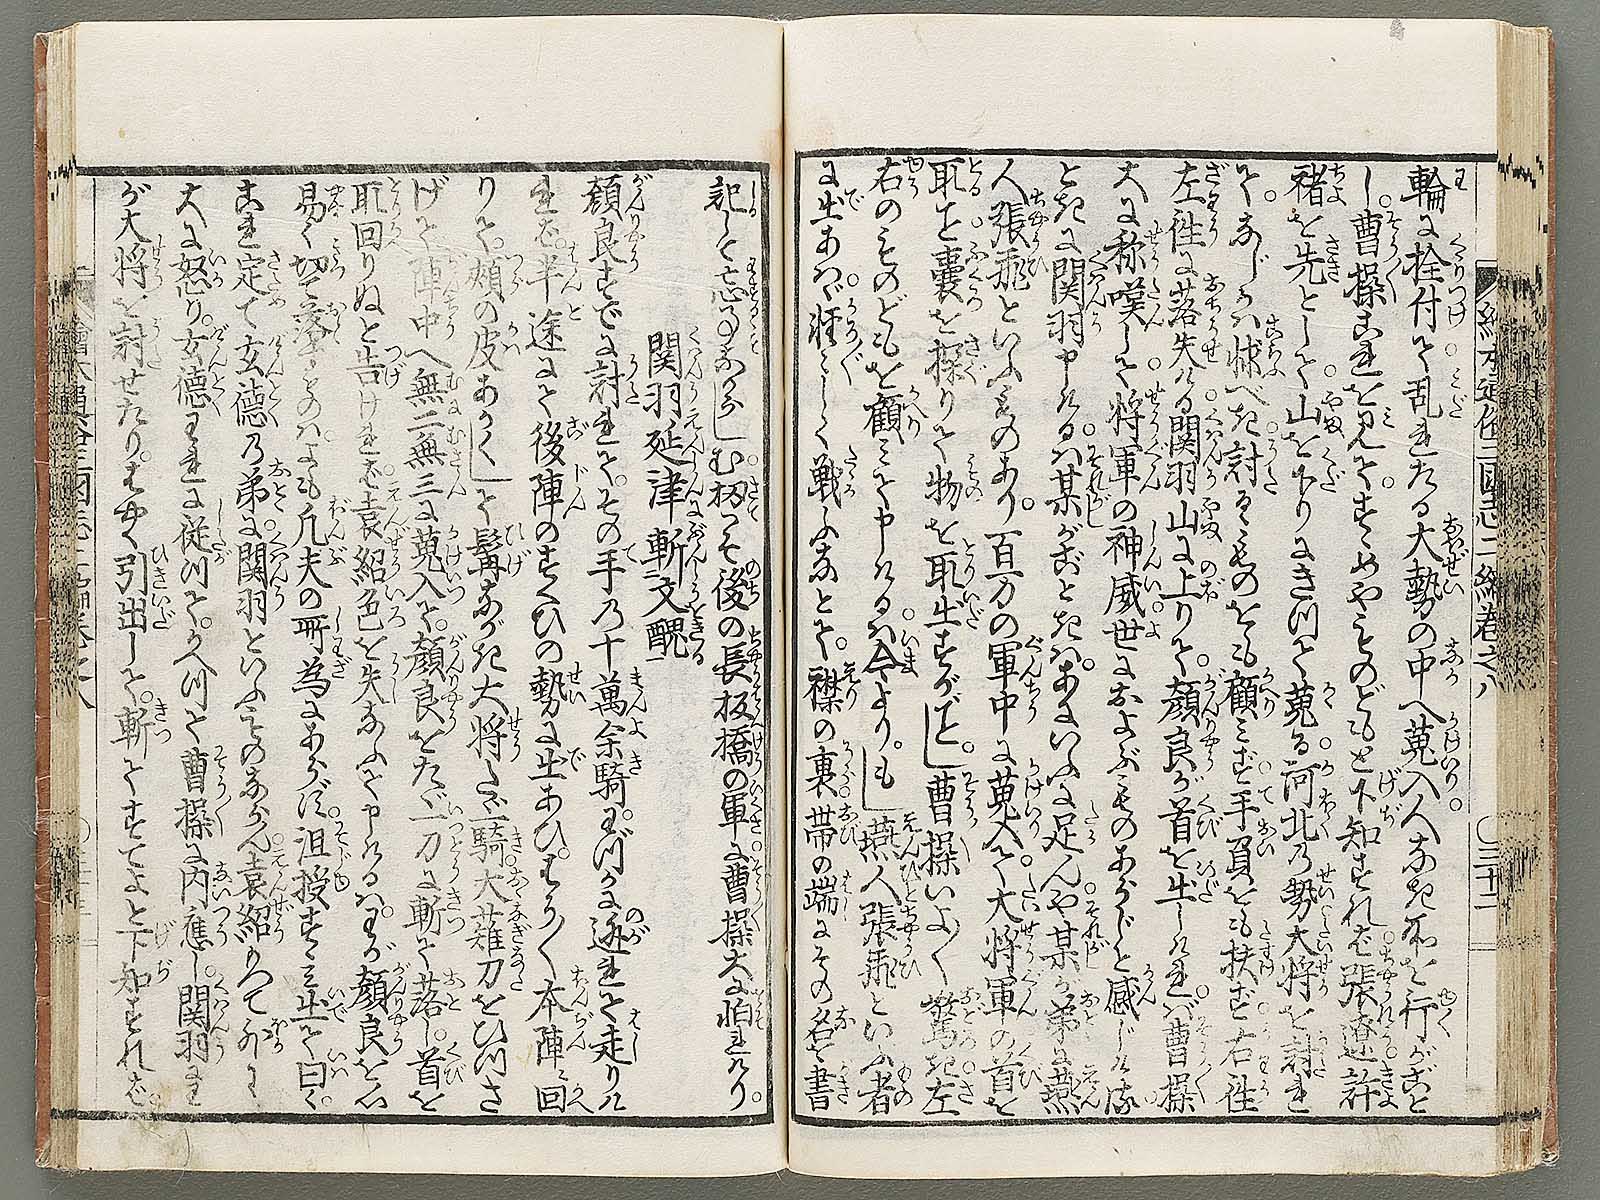 繪本通俗三國志二編卷之八 〇三十二
輪に栓付て乱れたる大勢の中へ蒐入人なき所を行がごと
し。曹操これを見て。すゝめやものどもと下知すれば張遼許
褚を先として山を下りまき川て蒐る。河北乃勢大将を討れ
て。なじかハ怺べき討るゝものをも顧ミず手負をも扶ず右往
左徃に落失ける関羽山に上りて。顔良が首を出しければ曹操
大に称嘆して将軍の神威世におよぶものあらじと感じける
とき関羽申けるハ某がごときハ。あに いふに足んや某が弟に燕
人張飛といふものあり。百万の軍中に蒐入て大将軍の首を
取こと嚢を探りて物を取出すがごとし。曹操いよ〱驚き左
右のものどもを顧ミて申けるハ今より。もし燕人張飛といふ者
に出あハゞ軽々しく戦ふなとて。襟の裏帯の端にその名を書
記して忘るゝことなかれしむ扨こそ後の長坂橋の軍に曹操大に怕れけり
関羽延津斬文醜
顔良すでに討れて。その手乃十萬余騎。わづかに逃れて走りけ
れバ。半途にて後陣のすくひの勢に出あひ。やう〱本陣に回
りて。頬の皮あかくして髯ながき大将たゞ一騎大薙刀をひつさ
げて陣中へ無二無三に蒐入て。顔良をたゞ一刀に斬て落し。首を
取回りぬと告ければ。袁紹色を失なふて申けるハ。わが顔良を心
易く切て落すものハよも凡夫の所為にあらず。沮授すゝミ出て曰く
これ定て玄徳乃弟に関羽といふものならん袁紹かつて
大に怒り。玄徳われに従川て。かへ川て曹操に内應し。関羽に
が大将を討せたり。はやく引出して。斬てすてよと下知すれば。
繪本通俗三國志二編卷之八